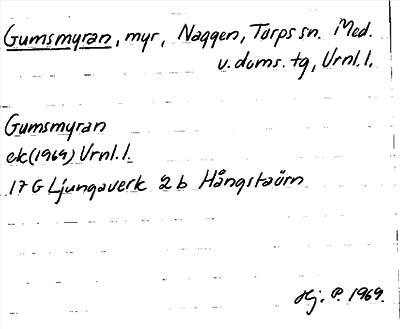 Gumsmyran, myr, Naggen, Torps sn. Med.
v. doms. tg, Vrnl. l.
Gumsmyran
ek (1969) Vrnl. l.
17 G Ljungaverk 2 b Hångstaörn
Hj. P. 1969.